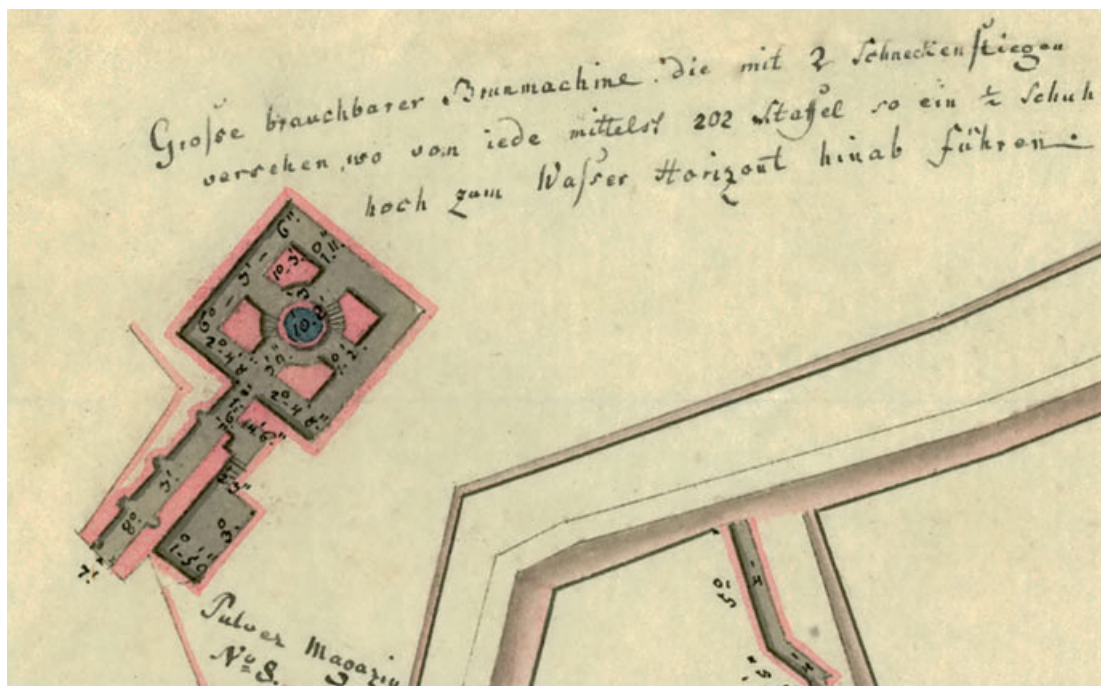 Große brauchbarer Brunmachine die mit 2 Schneckenstiegen
versehen, wo von iede mittelst 202 Staffel so ein ½ Schuh
hoch zum Waßer Horizont hinab führen
6° – 3' – 6"
10 – 3'
10
2° – 4' 8"
2° – 4' 8"
8° 3'
7'
Pulver Magazin
No 8.